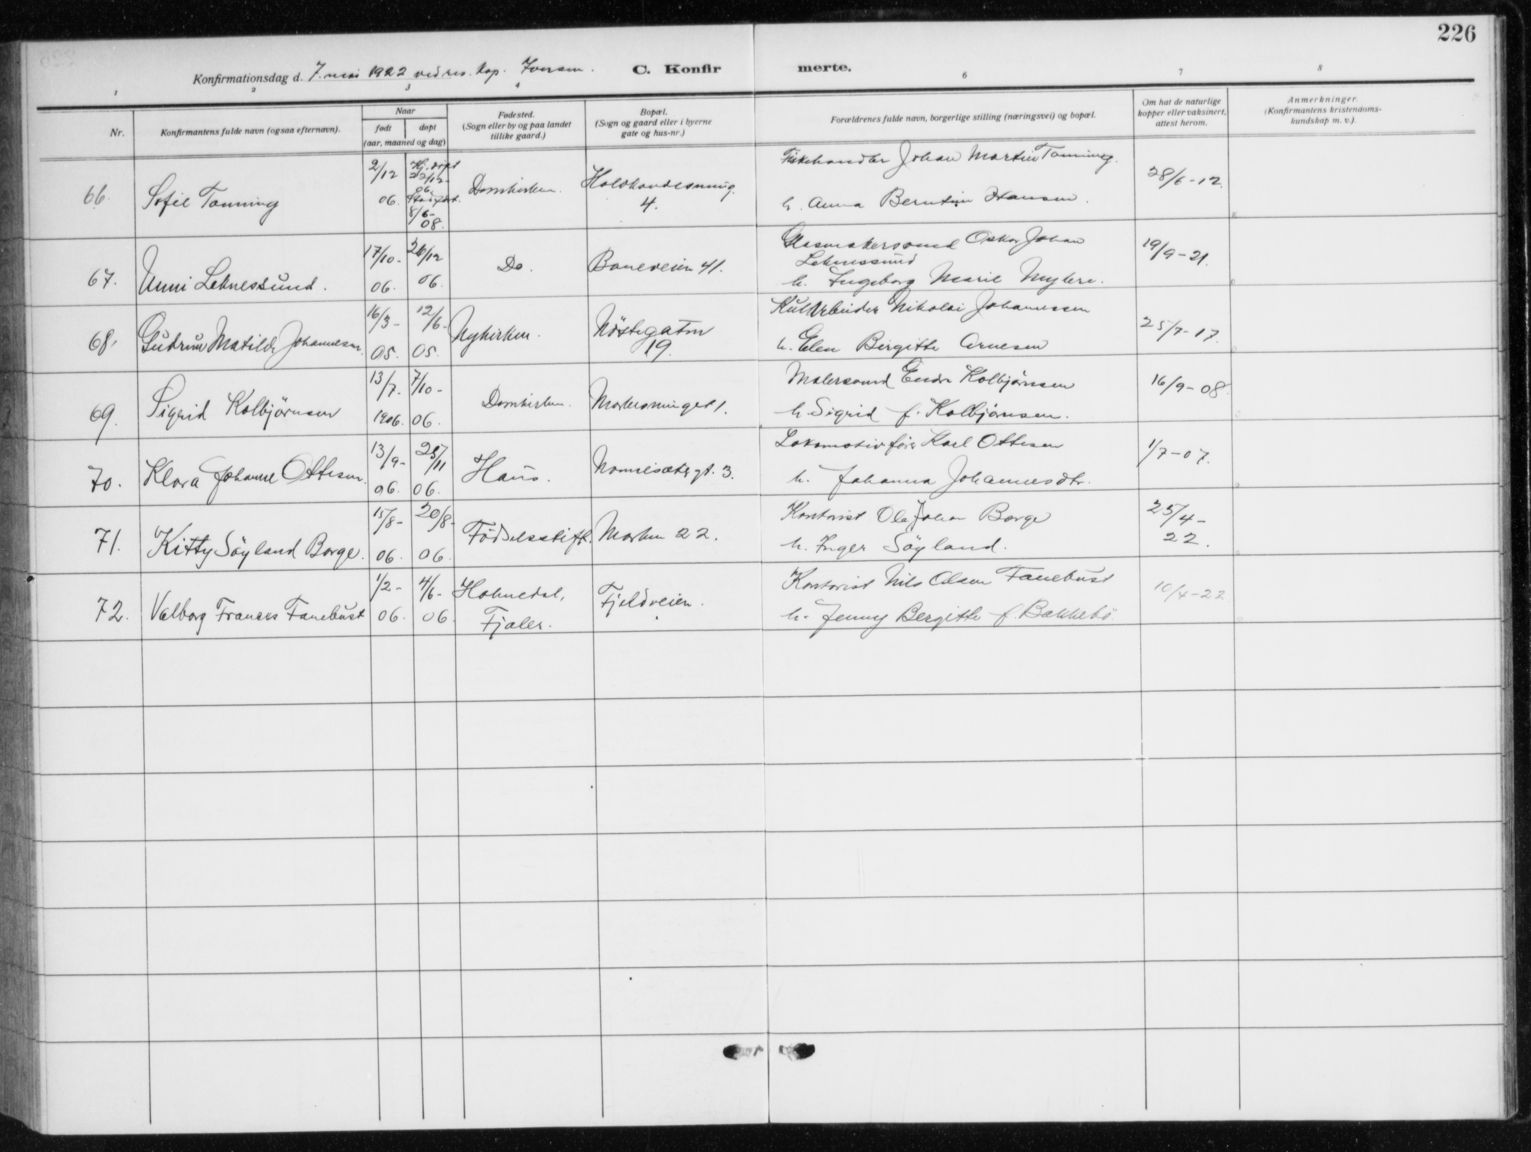 226
Konfirmationsdag d. 7. mai 1922 ved res. kap. Iversen. C. Konfirmerte.
1 2 3 4 6 7 8
Nr.
Konfirmantens fulde navn (ogsaa efternavn).
Naar
født døpt
(aar, maaned og dag)
Fødested.
(Sogn eller by og paa landet
tillike gaard.)
Bopæl.
(Sogn og gaard eller i byerne
gate og hus-nr.)
Forældrenes fulde navn, borgerlige stilling (næringsvei) og bopæl.
Om hat de naturlige
kopper eller vaksinert,
attest herom.
Anmerkninger.
(Konfirmantens kristendoms-
kundskap m. v.).
66. Sofie Tonning 2/12 06. Hj. døpt 22/12- 06. Stadfæst. 8/6- 08. Domkirken. 4.
Fiskehandler Johan Martin Tonning.
h. Anna Berntine Hansen. 28/6-12.
67. Unni Leknessund. 17/10- 06. 26/12 06. Do. Baneveien 41.
Glasmakersvend Oskar Johan
Leknessund
h. Ingeborg Marie Myhre. 19/9-21.
68. Gudrun Matilde Johannessen 16/3- 05. 12/6- 05. Nykirken. Nøstegaten
19.
Nikolai Johannessen
h. Elen Bergitte Arnesen 25/7-17.
69. Sigrid Kolbjørnsen 13/7. 1906. 7/10- 06. Domkirken. 1.
Malersvend Endre Kolbjørnsen
h. Sigrid f. Kolbjørnsen. 16/9-08
70. Klara Johanne Ottesen. 13/9- 06. 25/11 06. Haus. Nonnesætergt. 3.
Lokomotivfører Karl Ottesen
h. Johanna Johannesdtr. 1/7-07.
71. Kitty Søyland Borge. 15/8- 06. 20/8- 06. Fødselsstift. Marken 22.
Kontorist Ole Johan Borge
h. Inger Søyland. 25/4-
22.
72. Valborg Frances Fanebust 1/2- 06. 4/6- 06. Holmedal,
Fjaler. Fjeldveien.
Kontorist Nils Olsen Fanebust
h. Jenny Bergitte f. Bakkebø. 10/4-22